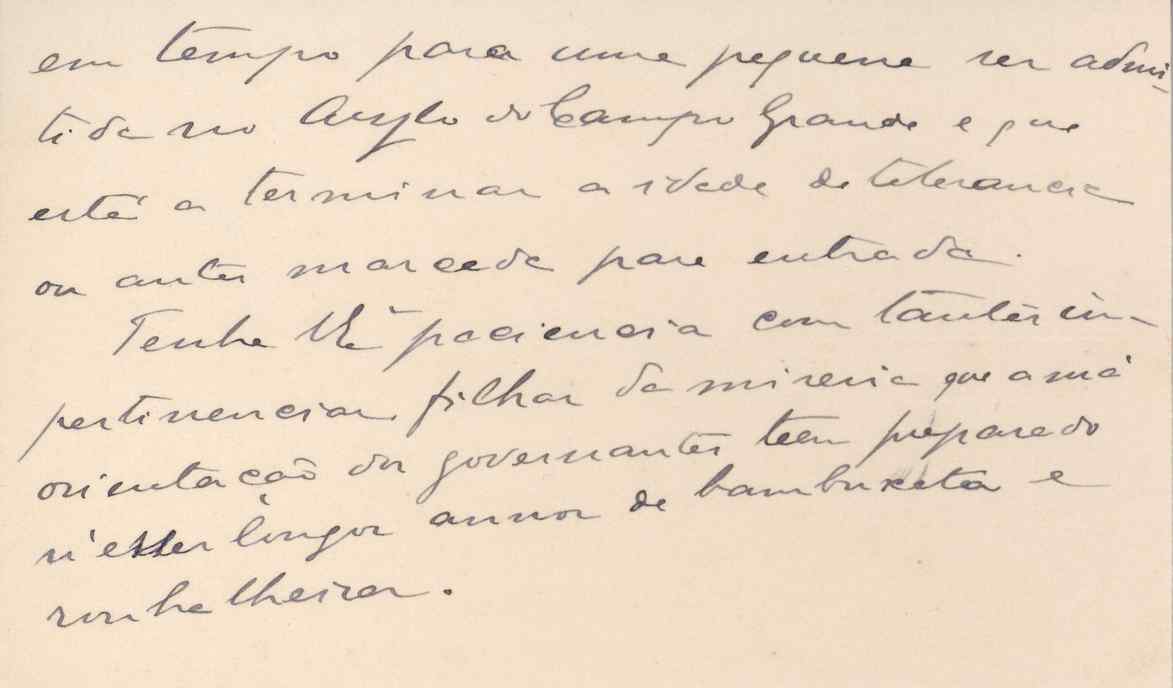 em tempo para uma pequena ser admi-
tida no Asylo do Campo Grande e que
está a terminar a idade de tolerancia
ou antes marcada para entrada.
Tenha V. Exª paciencia com tantas im-
pertinencias, filhas da miseria que a má
orientação dos governantes teem preparado
n'esses longos annos de bambuxata e